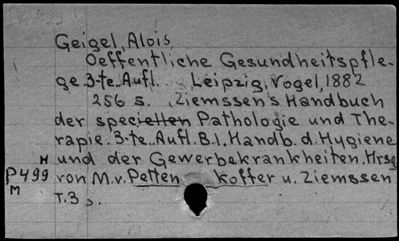 Geigel, Alois
Oeffentliche Gesundheitspfle-
ge. 3-te. Aufl. Leipzig, Vogel, 1882
256 s. (Ziemssen's Handbuch
der speciellen Pathologie und The-
rapie. 3-te. Aufl. B. 1. Handb. d. Hygiene
und der Gewerbekrankheiten. Hrsg
von M. v. Petten koffer u. Ziemssen
T. 3 s.
H
P499
M